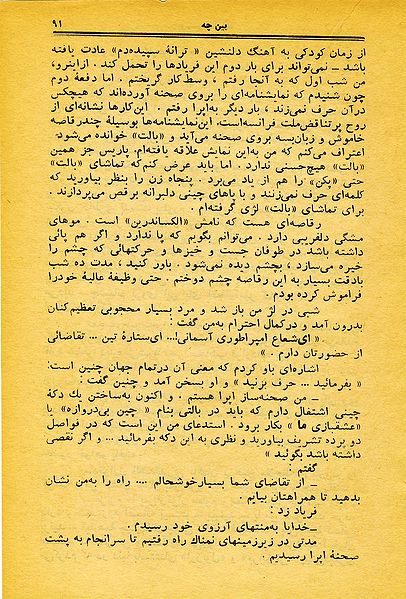 بین چه
۹۱
از زمان کودکی به آهنگ دلنشین « ترانهٔ سپیده‌دم» عادت یافته
باشد ـ نمی‌تواند برای بار دوم این فریادها را تحمل کند . ازاینرو،
من شب اول که به آنجا رفتم ، وسط کار گریختم . اما دفعهٔ دوم
چون شنیدم که نمایشنامه‌ای را بروی صحنه آورده‌اند که هیچکس
در آن حرف نمی‌زند ، بار دیگر به اپرا رفتم . این کارها نشانه‌ای از
روح پرتناقض ملت فرانسه است. این نمایشنامه‌ها بوسیلهٔ چند رقاصه
خاموش و زبان‌بسه بروی صحنه می‌آید و «بالت» خوانده می‌شود.
اعتراف می‌کنم که من به این نمایش علاقه یافته‌ام. پاریس جز همین
«بالت» هیچ حسنی ندارد . اما باید عرض کنم که تماشای «بالت»
حتی «پکن» را هم از یاد می‌برد . پنجاه زن را بنظر بیاورید که
کلمه‌ای حرف نمی‌زنند و با پاهای چینی دلبرانه برقص می‌پردازند .
برای تماشای «بالت» لژی گرفته‌ام .
رقاصه‌ای هست که نامش «الکساندرین» است . موهای
مشگی دلفریبی دارد . می‌توانم بگویم که پا ندارد و اگر هم پائی
داشته باشد در طوفان جست و خیزها و حرکتهائی که چشم را
خیره می‌سازد ، بچشم دیده نمی‌شود . باور کنید ، مدت ده شب
بادقت بسیار به این رقاصه چشم دوختم . حتی وظیفهٔ عالیهٔ خودرا
فراموش کرده بودم .
شبی در لژ من باز شد و مرد بسیار محجوبی تعظیم‌کنان
بدرون آمد و در کمال احترام به‌من گفت :
« ای‌شعاع امپراطوری آسمانی!... ای‌ستارهٔ تین ... تقاضائی
از حضورتان دارم . »
اشاره‌ای باو کردم که معنی آن در تمام جهان چنین است:
« بفرمائید ... حرف بزنید » و او بسخن آمد و چنین گفت :
ـ من صحنه‌ساز اپرا هستم . و اکنون به‌ساختن یك دکهٔ
چینی اشتغال دارم که باید در بالتی بنام « چین بی‌دروازه» یا
«عشقبازی ما » بکار برود . استدعای من این است که در فواصل
دو پرده تشریف بیاورید و نظری به این دکه بفرمائید ... و اگر نقصی
داشته باشد بگوئید »
گفتم :
ـ از تقاضای شما بسیار خوشحالم .... راه را به‌من نشان
بدهید تا همراهتان بیایم .
فریاد زد :
ـ خدایا به‌منتهای آرزوی خود رسیدم .
مدتی در زیرزمینهای نمناك راه رفتیم تا سرانجام به پشت
صحنهٔ اپرا رسیدیم .